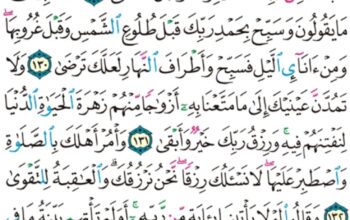 مَا يَقُولُونَ وَسَبِّحْ بِحَمْدِ رَبِّكَ قَبْلَ طُلُوعِ ٱلشَّمْسِ وَقَبْلَ غُرُوبِهَا ۖ
وَمِنْ ءَانَآئِ ٱلَّيْلِ فَسَبِّحْ وَأَطْرَافَ ٱلنَّهَارِ لَعَلَّكَ تَرْضَىٰ ١٣٠ وَلَا
تَمُدَّنَّ عَيْنَيْكَ إِلَىٰ مَا مَتَّعْنَا بِهِۦٓ أَزْوَٰجًا مِّنْهُمْ زَهْرَةَ ٱلْحَيَوٰةِ ٱلدُّنْيَا
لِنَفْتِنَهُمْ فِيهِ ۚ وَرِزْقُ رَبِّكَ خَيْرٌ وَأَبْقَىٰ ١٣١ وَأْمُرْ أَهْلَكَ بِٱلصَّلَوٰةِ
وَٱصْطَبِرْ عَلَيْهَا ۖ لَا نَسْـَٔلُكَ رِزْقًا ۖ نَّحْنُ نَرْزُقُكَ ۗ وَٱلْعَـٰقِبَةُ لِلتَّقْوَىٰ
١٣٢ وَقَالُوا۟ لَوْلَا يَأْتِينَا بِـَٔايَةٍ مِّن رَّبِّهِۦٓ ۚ أَوَلَمْ تَأْتِهِم بَيِّنَةُ مَا فِى